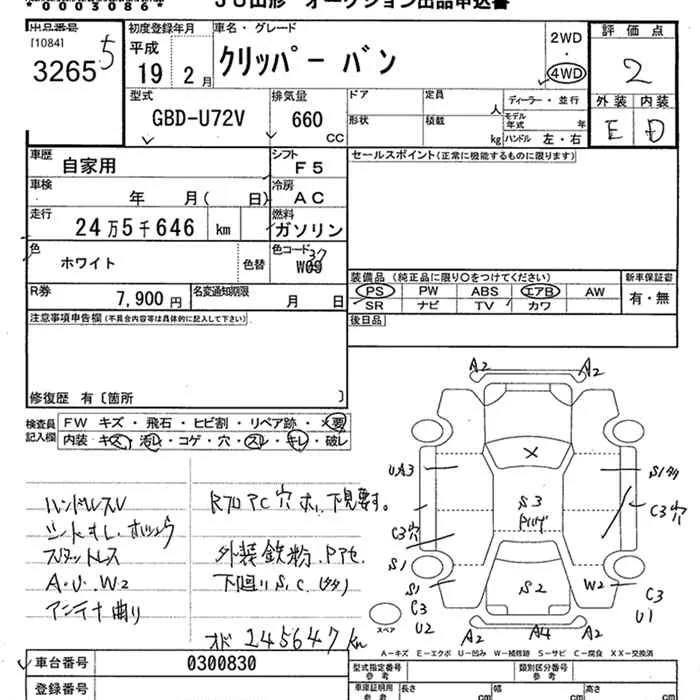 *00030864*
JU山形 オークション出品申込書
出品番号
[1084]
3265 5
初度登録年月
平成
19 2月
車名・グレード
クリッパー バン
2WD
・
4WD
評価点
2
外装 内装
E D
型式
GBD-U72V
排気量
660
CC
ドア
定員
人
ディーラー・並行
形状
積載
kg
モデル年式
年
ハンドル 左・右
車歴
自家用
シフト
F5
セールスポイント(正常に機能するものに限ります)
車検
年 月( 日)
冷房
AC
走行
24万5千646 km
燃料
ガソリン
色
ホワイト
色替
色コード
W09
37
装備品 (純正品に限り○をつけてください)
新車保証書
PS PW ABS エアB AW
SR ナビ TV カワ
有・無
R券
7,900 円
名変通知期限
月 日
後日品
注意事項申告欄(不具合内容等は具体的に記入して下さい)
修復歴 有〔箇所 〕
検査員
記入欄
FW キズ・飛石・ヒビ割・リペア跡・×要
内装 キズ・汚レ・コゲ・穴・スレ・キレ・破レ
ハンドルスレ
シートキレ
スタットレス
A.U.W2
アンテナ曲り
外装鉄粉
下回りS.C
オド 245647 Km
A2 A2
UA3
S3
C3穴
C3穴
S1
S1
S2
W2
C3
U2
C3
U1
A2 A4 A2
スペア
A-キズ E-エクボ U-凹み W-補修跡 S-サビ C-腐食 XX-交換済
車台番号
0300830
登録番号
型式指定番号
参考
類別区分番号
参考
車庫証明用
参考
長さ
cm
幅
cm
高さ
cm